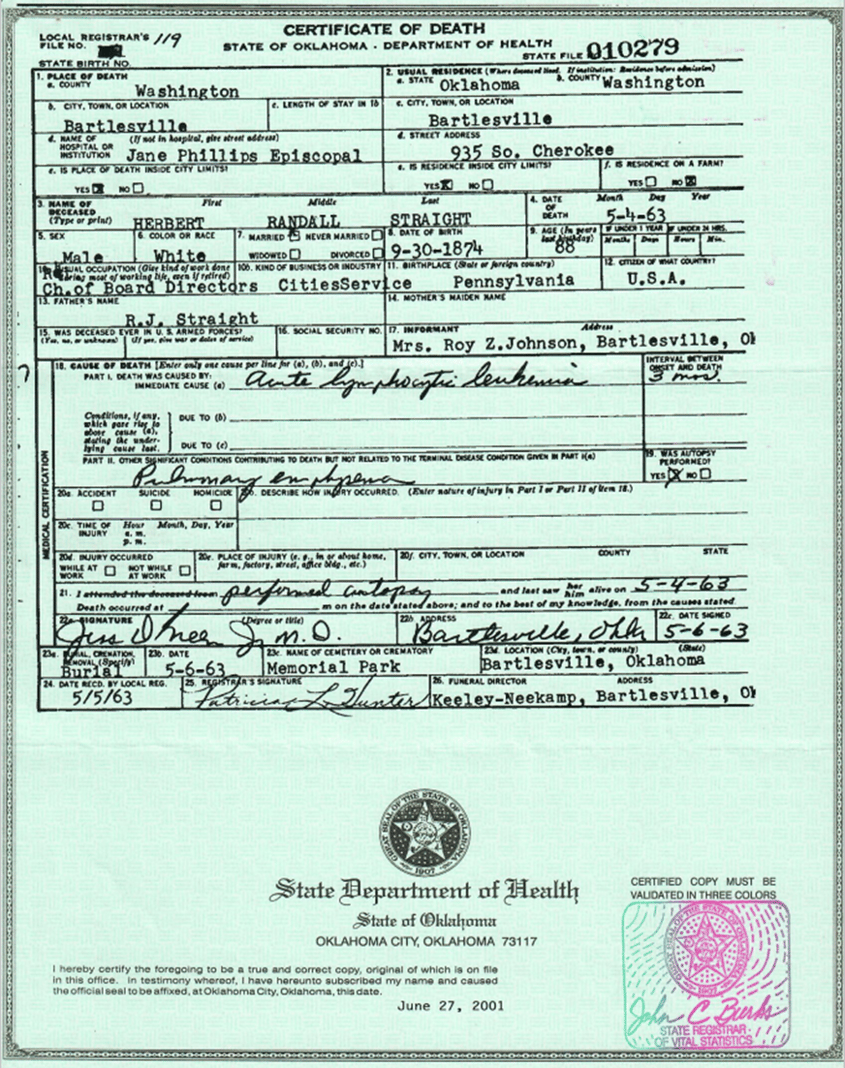 CERTIFICATE OF DEATH
LOCAL REGISTRAR'S 119
FILE NO.
STATE OF OKLAHOMA - DEPARTMENT OF HEALTH
STATE FILE 010279
STATE BIRTH NO.
1. PLACE OF DEATH
a. COUNTY Washington
2. USUAL RESIDENCE (Where deceased lived. If institution: Residence before admission)
a. STATE Oklahoma b. COUNTY Washington
b. CITY, TOWN, OR LOCATION Bartlesville
c. LENGTH OF STAY IN 1b
c. CITY, TOWN, OR LOCATION Bartlesville
d. NAME OF HOSPITAL OR INSTITUTION (If not in hospital, give street address) Jane Phillips Episcopal
d. STREET ADDRESS 935 So. Cherokee
e. IS PLACE OF DEATH INSIDE CITY LIMITS? YES NO
e. IS RESIDENCE INSIDE CITY LIMITS? YES NO
f. IS RESIDENCE ON A FARM? YES NO
3. NAME OF DECEASED (Type or print) First Middle Last
HERBERT RANDALL STRAIGHT
4. DATE OF DEATH Month Day Year
5-4-63
5. SEX Male
6. COLOR OR RACE White
7. MARRIED NEVER MARRIED
WIDOWED DIVORCED
8. DATE OF BIRTH 9-30-1874
9. AGE (In years last birthday) 88
IF UNDER 1 YEAR Months Days
IF UNDER 24 HRS. Hours Min.
10a. USUAL OCCUPATION (Give kind of work done during most of working life, even if retired)
Ch.of Board Directors
10b. KIND OF BUSINESS OR INDUSTRY CitiesService
11. BIRTHPLACE (State or foreign country) Pennsylvania
12. CITIZEN OF WHAT COUNTRY? U.S.A.
13. FATHER'S NAME R.J. Straight
14. MOTHER'S MAIDEN NAME
15. WAS DECEASED EVER IN U. S. ARMED FORCES?
(Yes, no, or unknown) (If yes, give war or dates of service)
16. SOCIAL SECURITY NO.
17. INFORMANT Address
Mrs. Roy Z.Johnson, Bartlesville, Ok
MEDICAL CERTIFICATION
18. CAUSE OF DEATH [Enter only one cause per line for (a), (b), and (c).]
PART I. DEATH WAS CAUSED BY:
IMMEDIATE CAUSE (a) Acute lymphocytic leukemia
INTERVAL BETWEEN ONSET AND DEATH 3 mos.
Conditions, if any, which gave rise to above cause (a), stating the underlying cause last.
DUE TO (b)
DUE TO (c)
PART II. OTHER SIGNIFICANT CONDITIONS CONTRIBUTING TO DEATH BUT NOT RELATED TO THE TERMINAL DISEASE CONDITION GIVEN IN PART I(a)
Pulmonary emphysema
19. WAS AUTOPSY PERFORMED? YES NO
20a. ACCIDENT SUICIDE HOMICIDE
20b. DESCRIBE HOW INJURY OCCURRED. (Enter nature of injury in Part I or Part II of item 18.)
20c. TIME OF INJURY Hour Month, Day, Year
a. m.
p. m.
20d. INJURY OCCURRED
WHILE AT WORK NOT WHILE AT WORK
20e. PLACE OF INJURY (e. g., in or about home, farm, factory, street, office bldg., etc.)
20f. CITY, TOWN, OR LOCATION COUNTY STATE
21. I attended the deceased from performed autopsy and last saw her him alive on 5-4-63
Death occurred at m on the date stated above; and to the best of my knowledge, from the causes stated.
22a. SIGNATURE (Degree or title) M.D.
22b. ADDRESS Bartlesville, Okla
22c. DATE SIGNED 5-6-63
23a. BURIAL, CREMATION, REMOVAL (Specify) Burial
23b. DATE 5-6-63
23c. NAME OF CEMETERY OR CREMATORY Memorial Park
23d. LOCATION (City, town, or county) (State) Bartlesville, Oklahoma
24. DATE RECD. BY LOCAL REG. 5/5/63
25. REGISTRAR'S SIGNATURE Patricia L. Hunter
26. FUNERAL DIRECTOR ADDRESS
Keeley-Neekamp, Bartlesville, Ok
GREAT SEAL OF THE STATE OF OKLAHOMA
1907
State Department of Health
State of Oklahoma
OKLAHOMA CITY, OKLAHOMA 73117
CERTIFIED COPY MUST BE
VALIDATED IN THREE COLORS
I hereby certify the foregoing to be a true and correct copy, original of which is on file
in this office. In testimony whereof, I have hereunto subscribed my name and caused
the official seal to be affixed, at Oklahoma City, Oklahoma, this date.
June 27, 2001
John C Burks
STATE REGISTRAR
OF VITAL STATISTICS